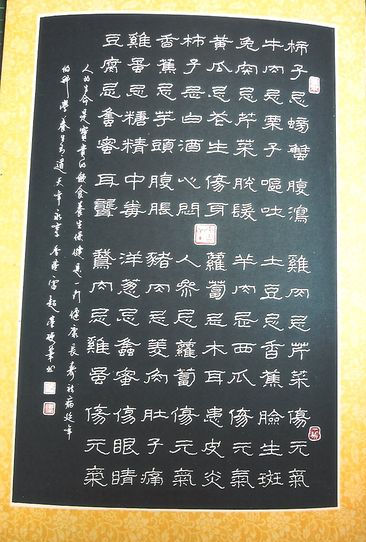 柿子忌螃蟹腹瀉雞肉忌芹菜傷元氣
牛肉忌栗子嘔吐土豆忌香蕉臉生斑
兔肉忌芹菜脫髮羊肉忌西瓜傷元氣
黃瓜忌花生傷身蘿蔔忌木耳患皮炎
柿子忌白酒心悶人參忌蘿蔔傷元氣
香蕉忌芋頭腹脹豬肉忌肉肚子痛
雞蛋忌糖精中毒洋蔥忌蜂蜜傷眼睛
豆腐忌蜂蜜耳聾鵞肉忌雞蛋傷元氣
人的生命是寶貴的飲食養生保健是一門健康長壽祛病延年
的科學養生之道天年永享